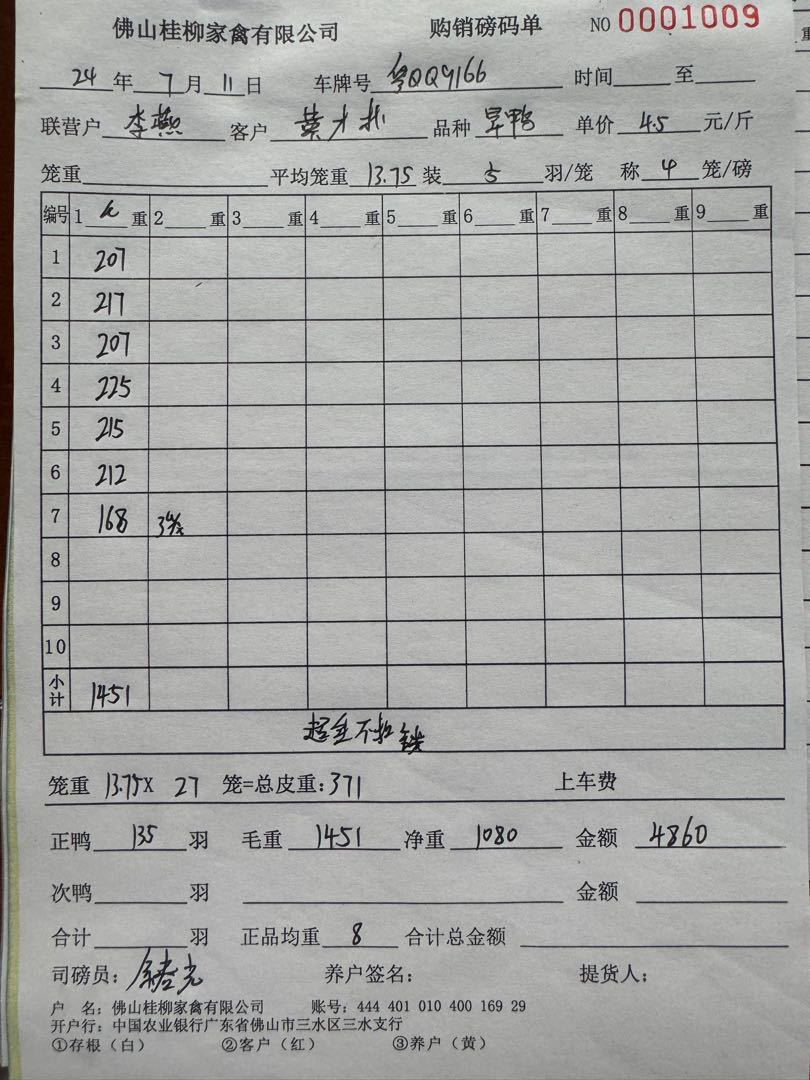 佛山桂柳家禽有限公司 购销磅码单 NO 0001009
24年7月11日 车牌号 粤QQ9166 时间 至
联营户 李燕 客户 叶才 品种 旱鸭 单价 4.5 元/斤
笼重 平均笼重 13.75 装 5 羽/笼 称 4 笼/磅
编号 1 重 2 重 3 重 4 重 5 重 6 重 7 重 8 重 9 重
1 207
2 217
3 207
4 225
5 215
6 212
7 168 3
8
9
10
小计 1451
超重不扣
笼重 13.75X 27 笼=总皮重:371 上车费
正鸭 135 羽 毛重 1451 净重 1080 金额 4860
次鸭 羽 金额
合计 羽 正品均重 8 合计总金额
司磅员: 养户签名: 提货人:
户 名: 佛山桂柳家禽有限公司 账号: 444 401 010 400 169 29
开户行: 中国农业银行广东省佛山市三水区三水支行
①存根(白) ②客户(红) ③养户(黄)